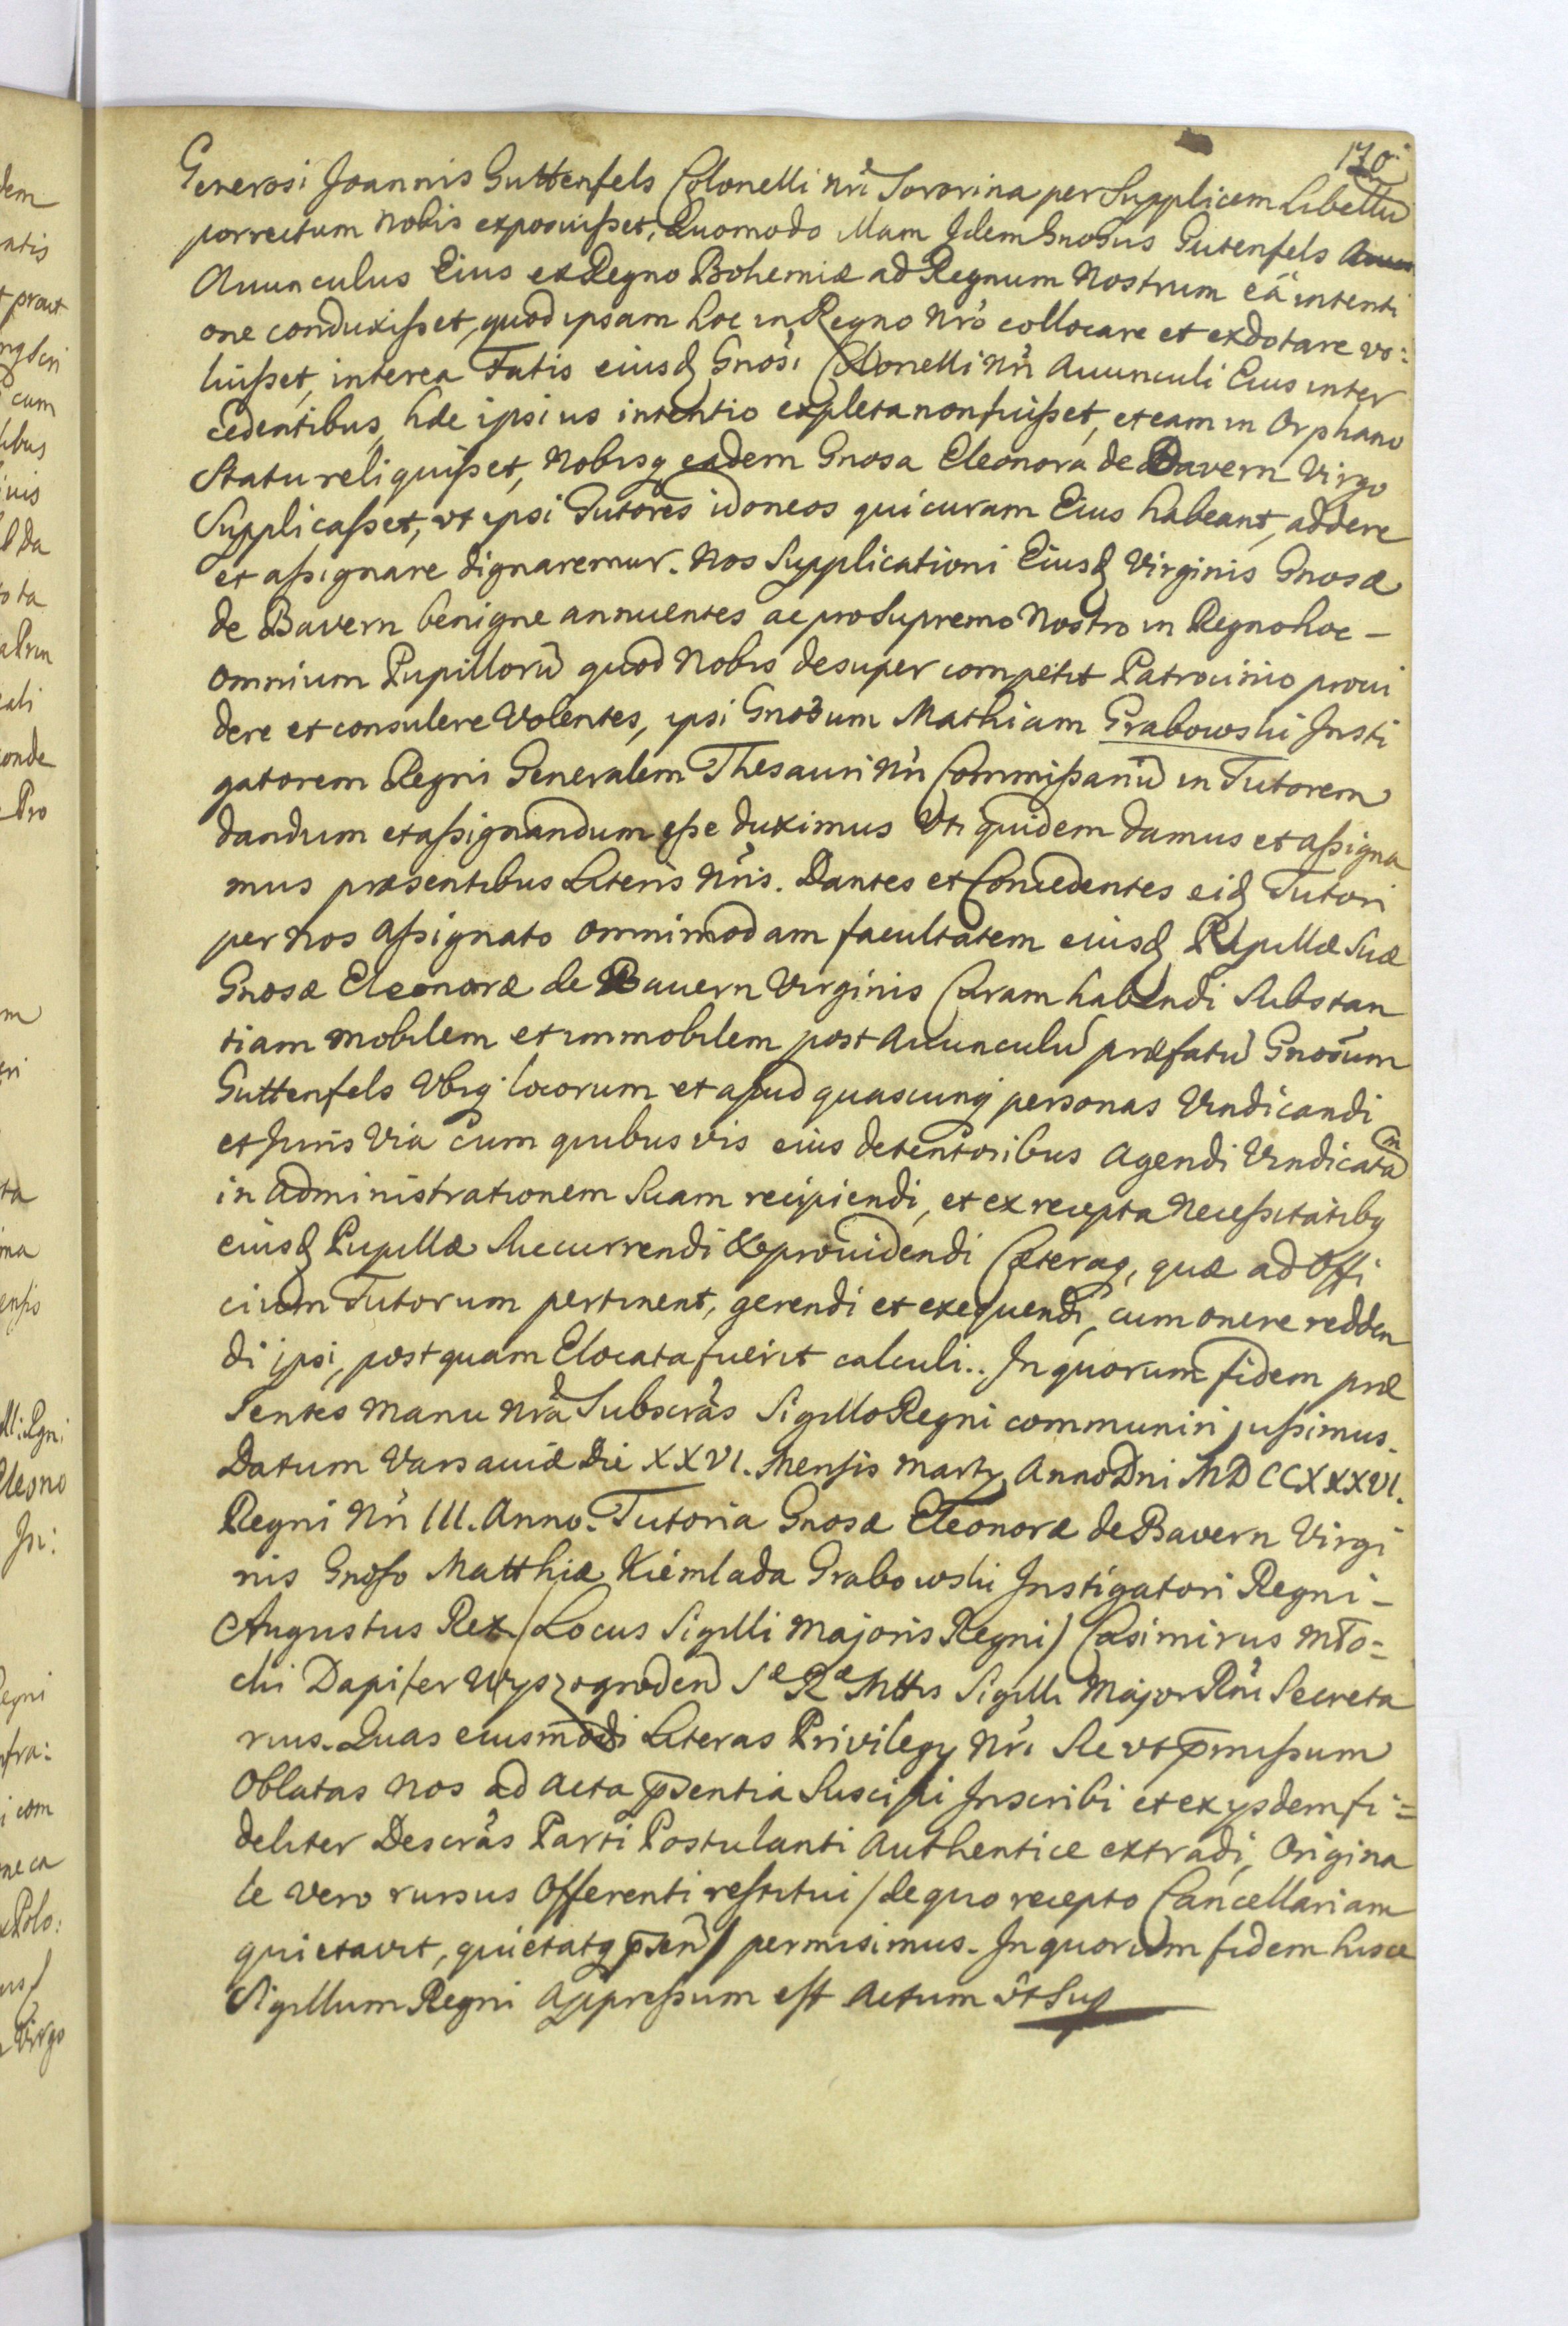 170
Generosi Joannis Guttenfels Colonelli nri Sororina per Supplicem Libellũ
porrectum nobis exposuisset, Quomodo illam Idem Gnosus Gutenfels
Avunculus Eius ex Regno Bohemiæ ad Regnum nostrum eâ intenti
one conduxisset, quod ipsam hoc in Regno nro collocare et exdotare vo:
luisset, interea Fatis eiusd Gnosi Colonelli nri Avunculi Eius inter
cedentibus, hæc ipsius intentio expleta non fuisset, et eam in Orphano
Statu reliquisset, nobisq eadem Gnosa Eleonora de Bavern Virgo
Supplicasset, ut ipsi Tutores idoneos qui curam Eius habeant, addere
et assignare dignaremur. Nos Supplicationi Eiusd Virginis Gnosæ
de Bavern benigne annuentes ac pro Supremo Nostro in Regno hoc –
omnium Pupillorũ quod Nobis desuper competit Patrocinio provi
dere et consulere Volentes, ipsi Gnosum Mathiam Grabowski Insti
gatorem Regni Generalem Thesauri nri Commissariũ in Tutorem
dandum et assignandum esse duximus Uti quidem damus et assigna
mus præsentibus Literis nris. Dantes et Concedentes eid Tutori
per nos assignato omnimodam facultatem eiusd Pupillæ suæ
Gnosæ Eleonoræ de Bavern Virginis Curam habendi Substan
tiam mobilem et immobilem post Avunculũ præfatũ Gnosum
Guttenfels Ubiq locorum et apud quascunq personas Vindicandi
et Juris Via cum quibusvis eius detentoribus agendi Vindicatam
in administrationem suam recipiendi, et ex recepta necessitatibq
eiusd Pupillæ Succurrendi & providendi Cæteraq, quæ ad Offi
cium Tutorum pertinent, gerendi et exequendi, cum onere redden
di ipsi, postquam Elocata fuerit calculi.. In quorum fidem præ
sentes manu nra Subscras Sigillo Regni communiri jussimus.
Datum Varsaviæ Die XXVI. Mensis Martij Anno Dni MDCCXXXVI.
Regni Nri III. Anno. Tutoria Gnosæ Eleonoræ de Bavern Virgi
nis Gnoso Matthiæ Kiemlada Grabowski Instigatori Regni –
Augustus Rex /Locus Sigilli Majoris Regni/ Casimirus Mło=
cki Dapifer Wyszogroden S R Mttis Sigilli Major Rni Secreta
rius. Quas eiusmodi Literas Privilegij Nri Sic ut p̄missum
Oblatas nos ad Acta p̄sentia Suscipi Inscribi et ex ijsdem fi=
deliter Descras Parti Postulanti Authentice extradi, Origina
le vero rursus Offerenti restitui /de quo recepto Cancellariam
quietavit, quietatq p̄sen/ permisimus. In quorum fidem hisce
Sigillum Regni appressum est Actum ut Sup